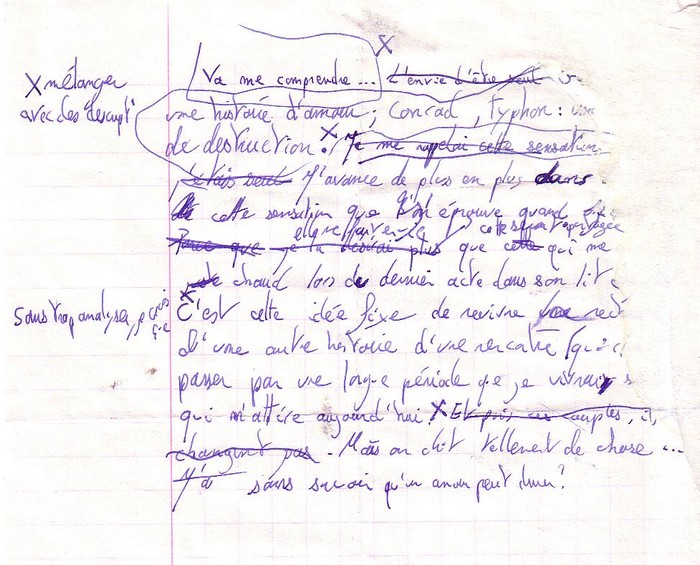 X
Va me comprendre... L'envie d'être seul
X mélanger
avec des descript
une histoire d'amour ; Conrad, Typhon :
de destruction. X Je me rappelai cette sensation
j'étais seul J'avance de plus en plus dans
cette sensation que l'on éprouve quand
Parce que je la désirai plus que cette qui me
chaud lors du dernier acte dans son lit
Sans trop analyser, je
X
C'est cette idée fixe de revivre une
d'une autre histoire d'une rencontre (qui
passer par une longue période que je vivrais
qui m'attire aujourd'hui. X Et puis ces couples, il
changent pas. Mais on dit tellement de chose...
J'ai sans savoir qu'un amour peut durer?